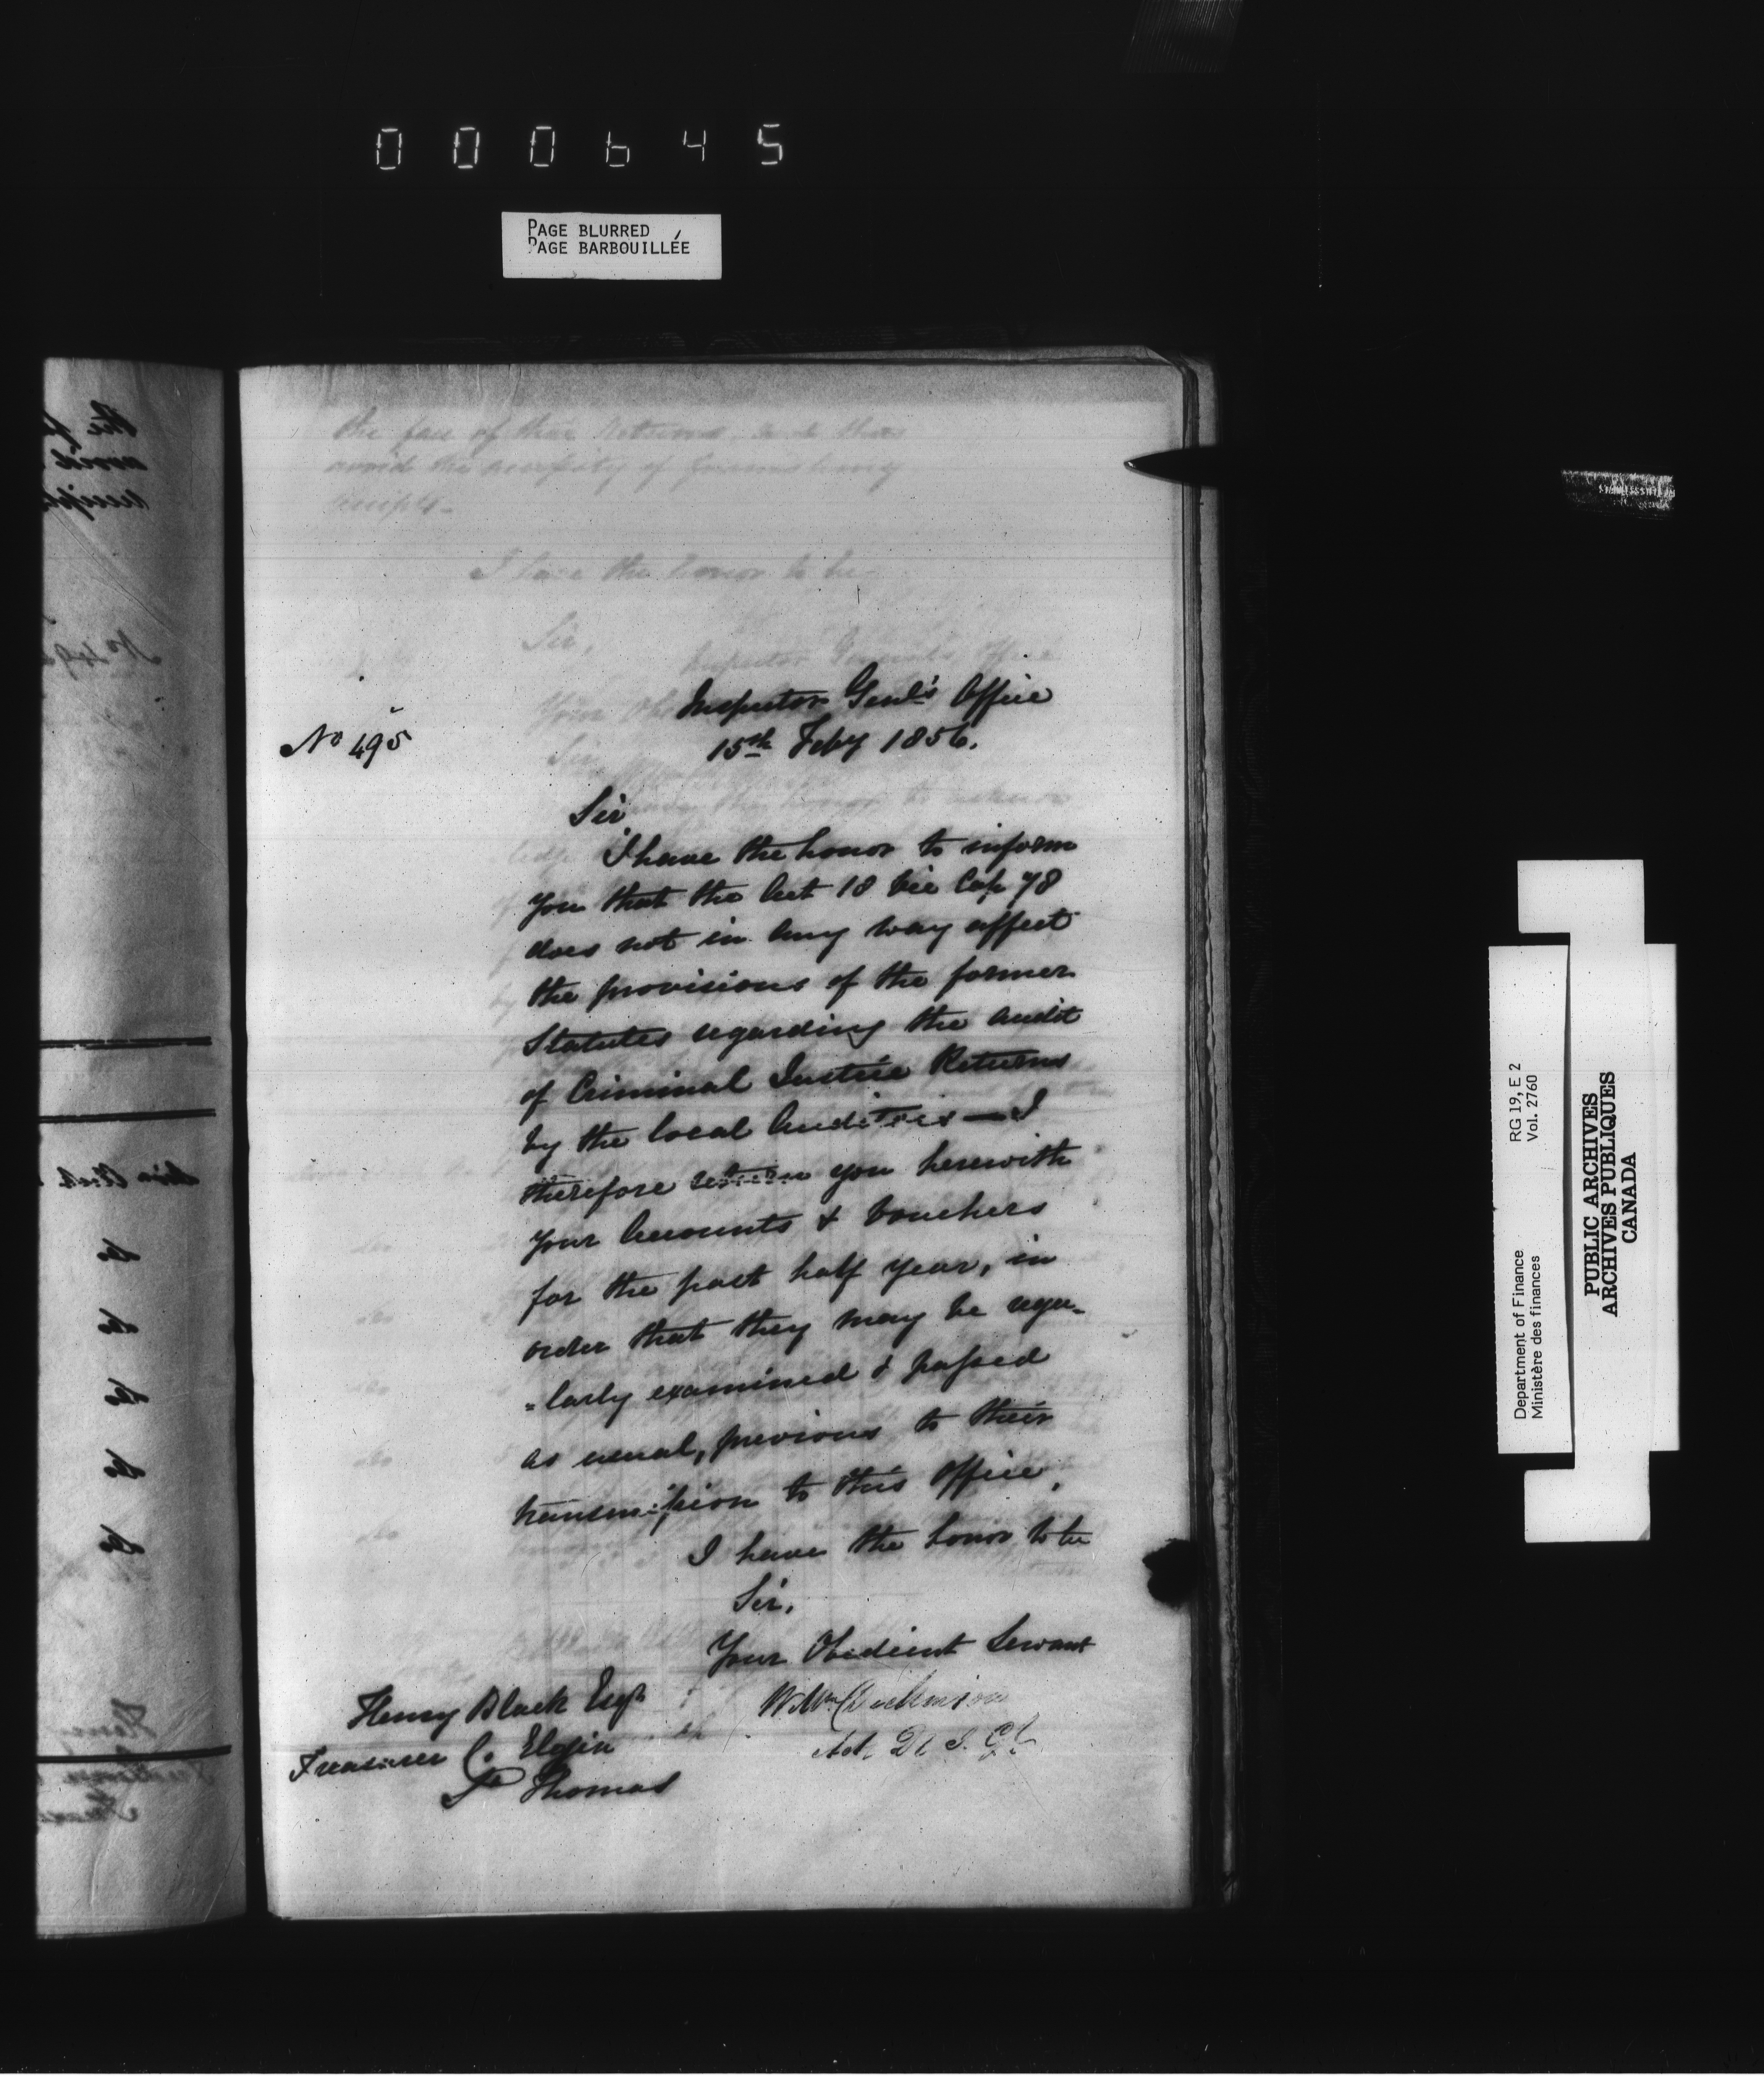 000645
PAGE BLURRED
PAGE BARBOUILLÉE
the face of their Returns, and thus
avoid the necessity of furnishing
receipts.
I have the honor to be
Sir,
Inspector Genl's Office
No 495
15th Feby 1856.
Sir
I have the honor to inform
you that the Act 18 Vic Cap 78
does not in any way affect
the provisions of the former
Statutes regarding the audit
of Criminal Justice Returns
by the local Auditors — I
therefore return you herewith
your Accounts & Vouchers
for the past half year, in
order that they may be regu-
=larly examined & passed
as usual, previous to their
transmission to this Office.
I have the honor to be
Sir,
Your Obedient Servant
Wm Dickinson
Act. D I. Gl
Henry Black Esqr
Treasurer Co. Elgin
St Thomas
RG 19, E 2
Vol. 2760
Department of Finance
Ministère des finances
PUBLIC ARCHIVES
ARCHIVES PUBLIQUES
CANADA